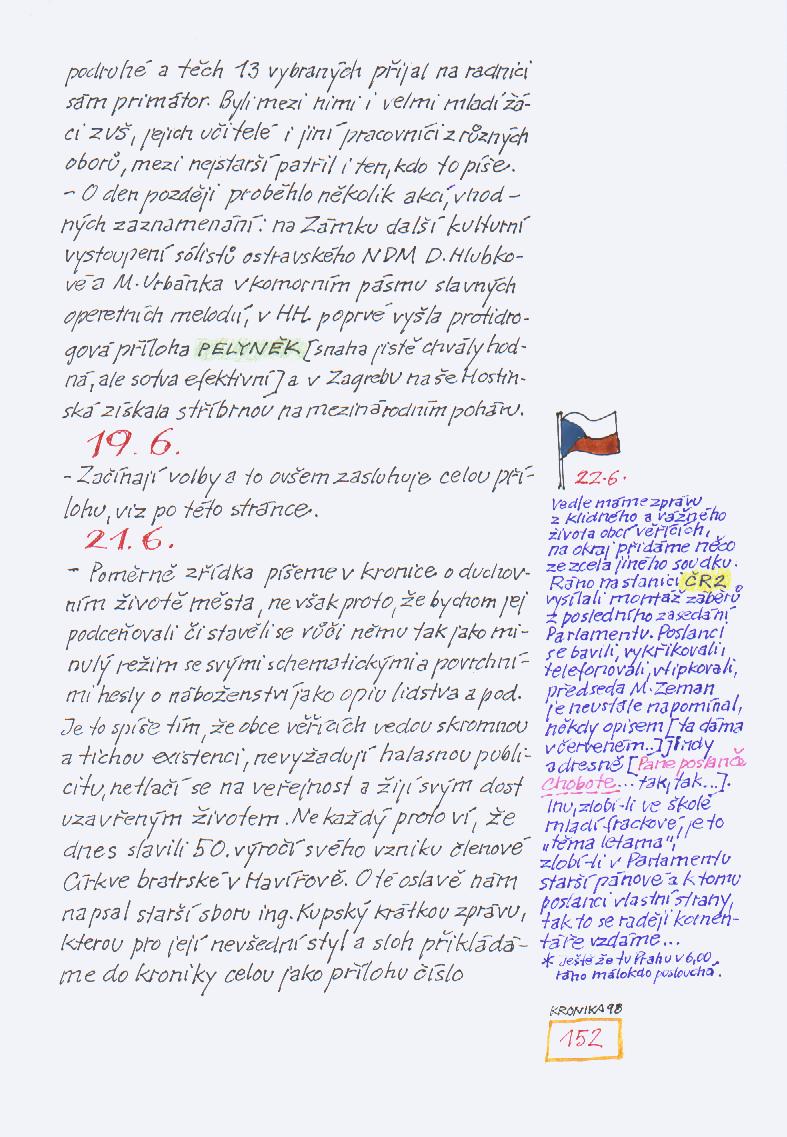 podruhé a těch 13 vybraných přijal na radnici
sám primátor. Byli mezi nimi i velmi mladí žá-
ci zvš, jejich učitelé i jiní pracovníci z různých
oborů, mezi nejstarší patřil i ten, kdo to píše.
- O den později proběhlo několik akcí, vhod-
ných zaznamenání: na Zámku další kulturní
vystoupení sólistů ostravského NDM D. Hlubko-
vé a M. Urbánka v komorním pásmu slavných
operetních melodií, v HH poprvé vyšla protidro-
gová příloha PELYNĚK [snaha jistě chvályhod-
ná, ale sotva efektivní] a v Zagrebu naše Hostin-
ská získala stříbrnou na mezinárodním poháru.
19. 6.
- Začínají volby a to ovšem zasluhuje celou pří-
lohu, viz po této stránce.
21. 6.
- Poměrně zřídka píšeme v kronice o duchov-
ním životě města, ne však proto, že bychom jej
podceňovali či stavěli se vůči němu tak jako mi-
nulý režim se svými schematickými a povrchní-
mi hesly o náboženství jako opiu lidstva a pod.
Je to spíše tím, že obce věřících vedou skromnou
a tichou existenci, nevyžadují halasnou publi-
citu, netlačí se na veřejnost a žijí svým dost
uzavřeným životem. Ne každý proto ví, že
dnes slavili 50. výročí svého vzniku členové
Církve bratrské v Havířově. O té oslavě nám
napsal starší sboru ing. Kupský krátkou zprávu,
kterou pro její nevšední styl a sloh přikládá-
me do kroniky celou jako přílohu číslo
22.6.
Vedle máme zprávu
z klidného a vážného
života obcí věřících,
na okraj přidáme něco
ze zcela jiného soudku.
Ráno na stanici ČR2
vysílali montáž záběrů
z posledního zasedání
Parlamentu. Poslanci
se bavili, vykřikovali,
telefonovali, vtipkovali,
předseda M. Zeman
je neustále napomínal,
někdy opisem [ta dáma
v červeném..] jindy
adresně [Pane poslanče
Chobote... tak, tak...].
Inu, zlobí-li ve škole
mladí frackové, je to
„téma letama",
zlobí-li v Parlamentu
starší pánové a k tomu
poslanci vlastní strany,
tak to se raději komen-
táře vzdáme...
* Ještě že tu Prahu v 6,00
ráno málokdo poslouchá.
KRONIKA 98
152